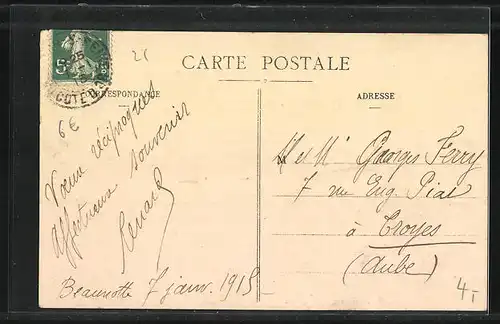 5c
COTE D'OR
26
CARTE POSTALE
CORRESPONDANCE
ADRESSE
6€
Vœux réciproques
affectueux souvenir
Renard
Beaunotte 7 janv. 1915
M et Mme Georges Ferry
7 rue Eug. Piat
à Troyes
(Aube)
4,-